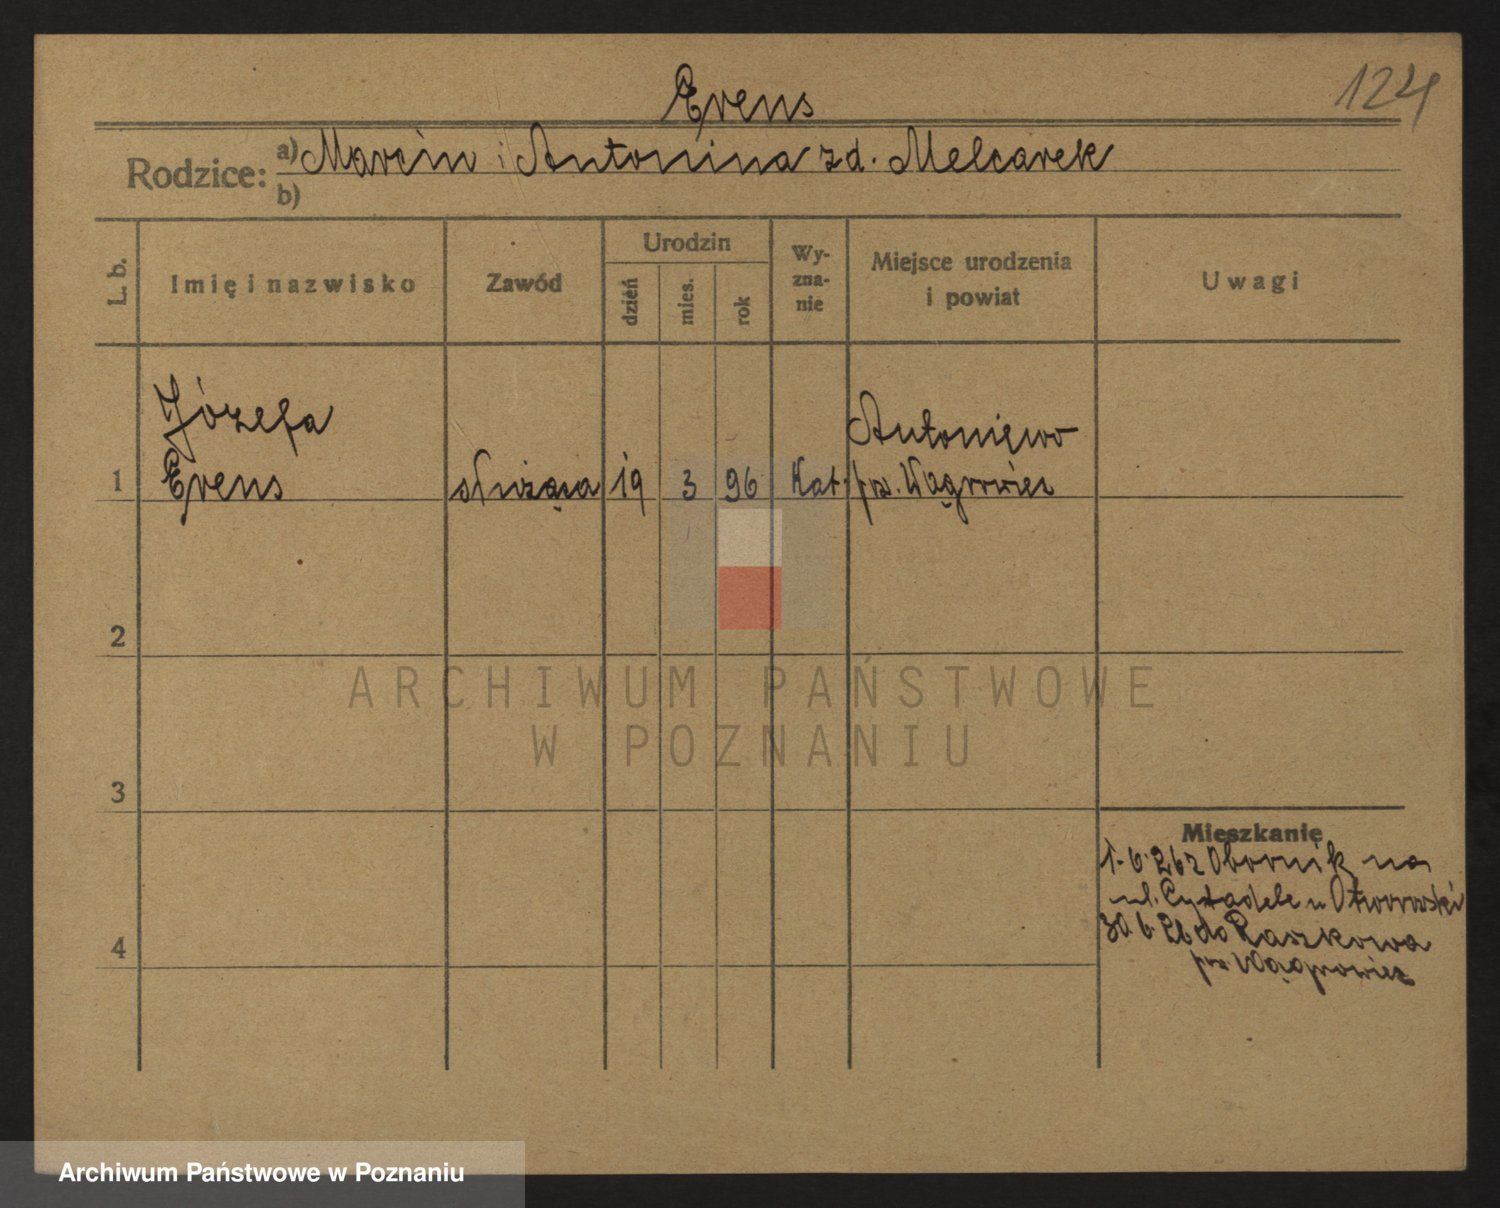 Evens
124
Rodzice:
a) Marcin i Antonina zd. Melcarek
b)
L. b.
Imię i nazwisko
Zawód
Urodzin
dzień
mies.
rok
Wy-
zna-
nie
Miejsce urodzenia
i powiat
Uwagi
Józefa
Antoniewo
1 Evens służąca 19 3 96 Kat. pw. Wągrowiec
2
3
4
Mieszkanie
1.6.26 z Obornik na
ul. Cytadele u Otworowski
30 6 26 do Raszkowa
pw Wągrowiec
ARCHIWUM PAŃSTWOWE
W POZNANIU
Archiwum Państwowe w Poznaniu